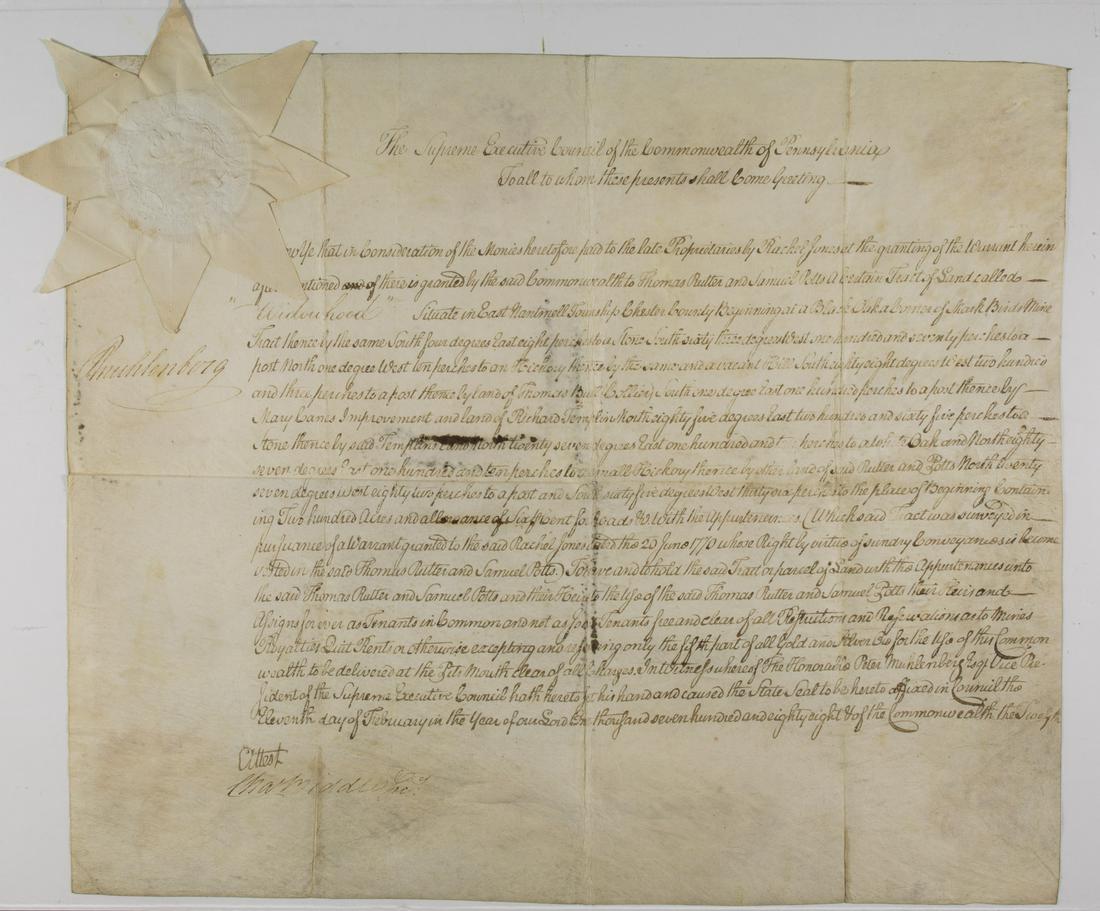 The Supreme Executive Council of the Commonwealth of Pennsylvania
To all to whom these presents shall Come Greeting
Ye that in Consideration of the Monies heretofore paid to the late Proprietaries by Rachel Jones at the granting of the Warrant herein
mentioned there is granted by the said Commonwealth to Thomas Rutter and Samuel Potts A Certain Tract of Land called
"Widowhood" Situate in East Nantmell Township Chester County Beginning at a Black Oak a Corner of Mark Birds Mine
Tract thence by the same South four degrees East eight perches to a Stone South sixty three degrees West one hundred and seventy perches to a
post North one degree West ten perches to an Hickory thence by the same and a vacant Hill South eighty eight degrees West two hundred
and three perches to a post thence by land of Thomas Bull South one degree east one hundred perches to a post thence by
Mary Canes Improvement and land of Richard Templin North eighty five degrees East two hundred and sixty five perches to a
Stone thence by said Templins Land North twenty seven degrees East one hundred and perches to a Oak and North eighty
seven degrees one hundred and ten perches to a small Hickory thence by other land of said Rutter and Potts North twenty
seven degrees West eighty two perches to a post and South sixty five degrees West thirty six perches to the place of Beginning Contain
ing Two hundred Acres and allowance of Six Cent for Roads &c With the Appurtenances (Which said Tract was surveyed in
pursuance of a Warrant granted to the said Rachel Jones dated the 20 June 1770 whose Right by virtue of sundry Conveyances is become
vested in the said Thomas Rutter and Samuel Potts.) To have and to hold the said Tract or parcel of Land with the Appurtenances unto
the said Thomas Rutter and Samuel Potts and their Heirs to the Use of the said Thomas Rutter and Samuel Potts their Heirs and
Assigns forever as Tenants in Common and not as Joint Tenants free and clear of all Restrictions and Reservations as to Mines
Royalties Quit Rents or otherwise excepting and reserving only the fifth part of all Gold and Silver Ore for the Use of this Common
wealth to be delivered at the Pits Mouth clear of all Charges. In Witness whereof The Honorable Peter Muhlenberg Esqr Vice Pre
sident of the Supreme Executive Council hath hereto set his hand and caused the State Seal to be hereto affixed in Council the
Eleventh day of February in the Year of our Lord One thousand seven hundred and eighty eight & of the Commonwealth the Twelfth
P Muhlenberg
Attest
Cha Biddle Secy